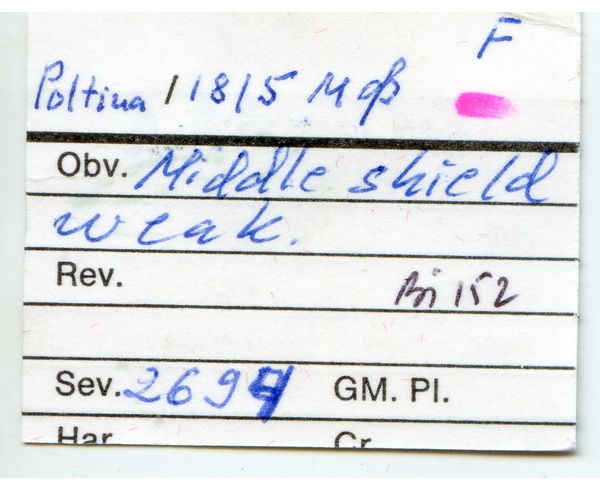 F
Poltina / 1815 МФ
Obv. Middle shield
weak.
Rev. Bi 152
Sev. 2694 GM. Pl.
Har. Cr.